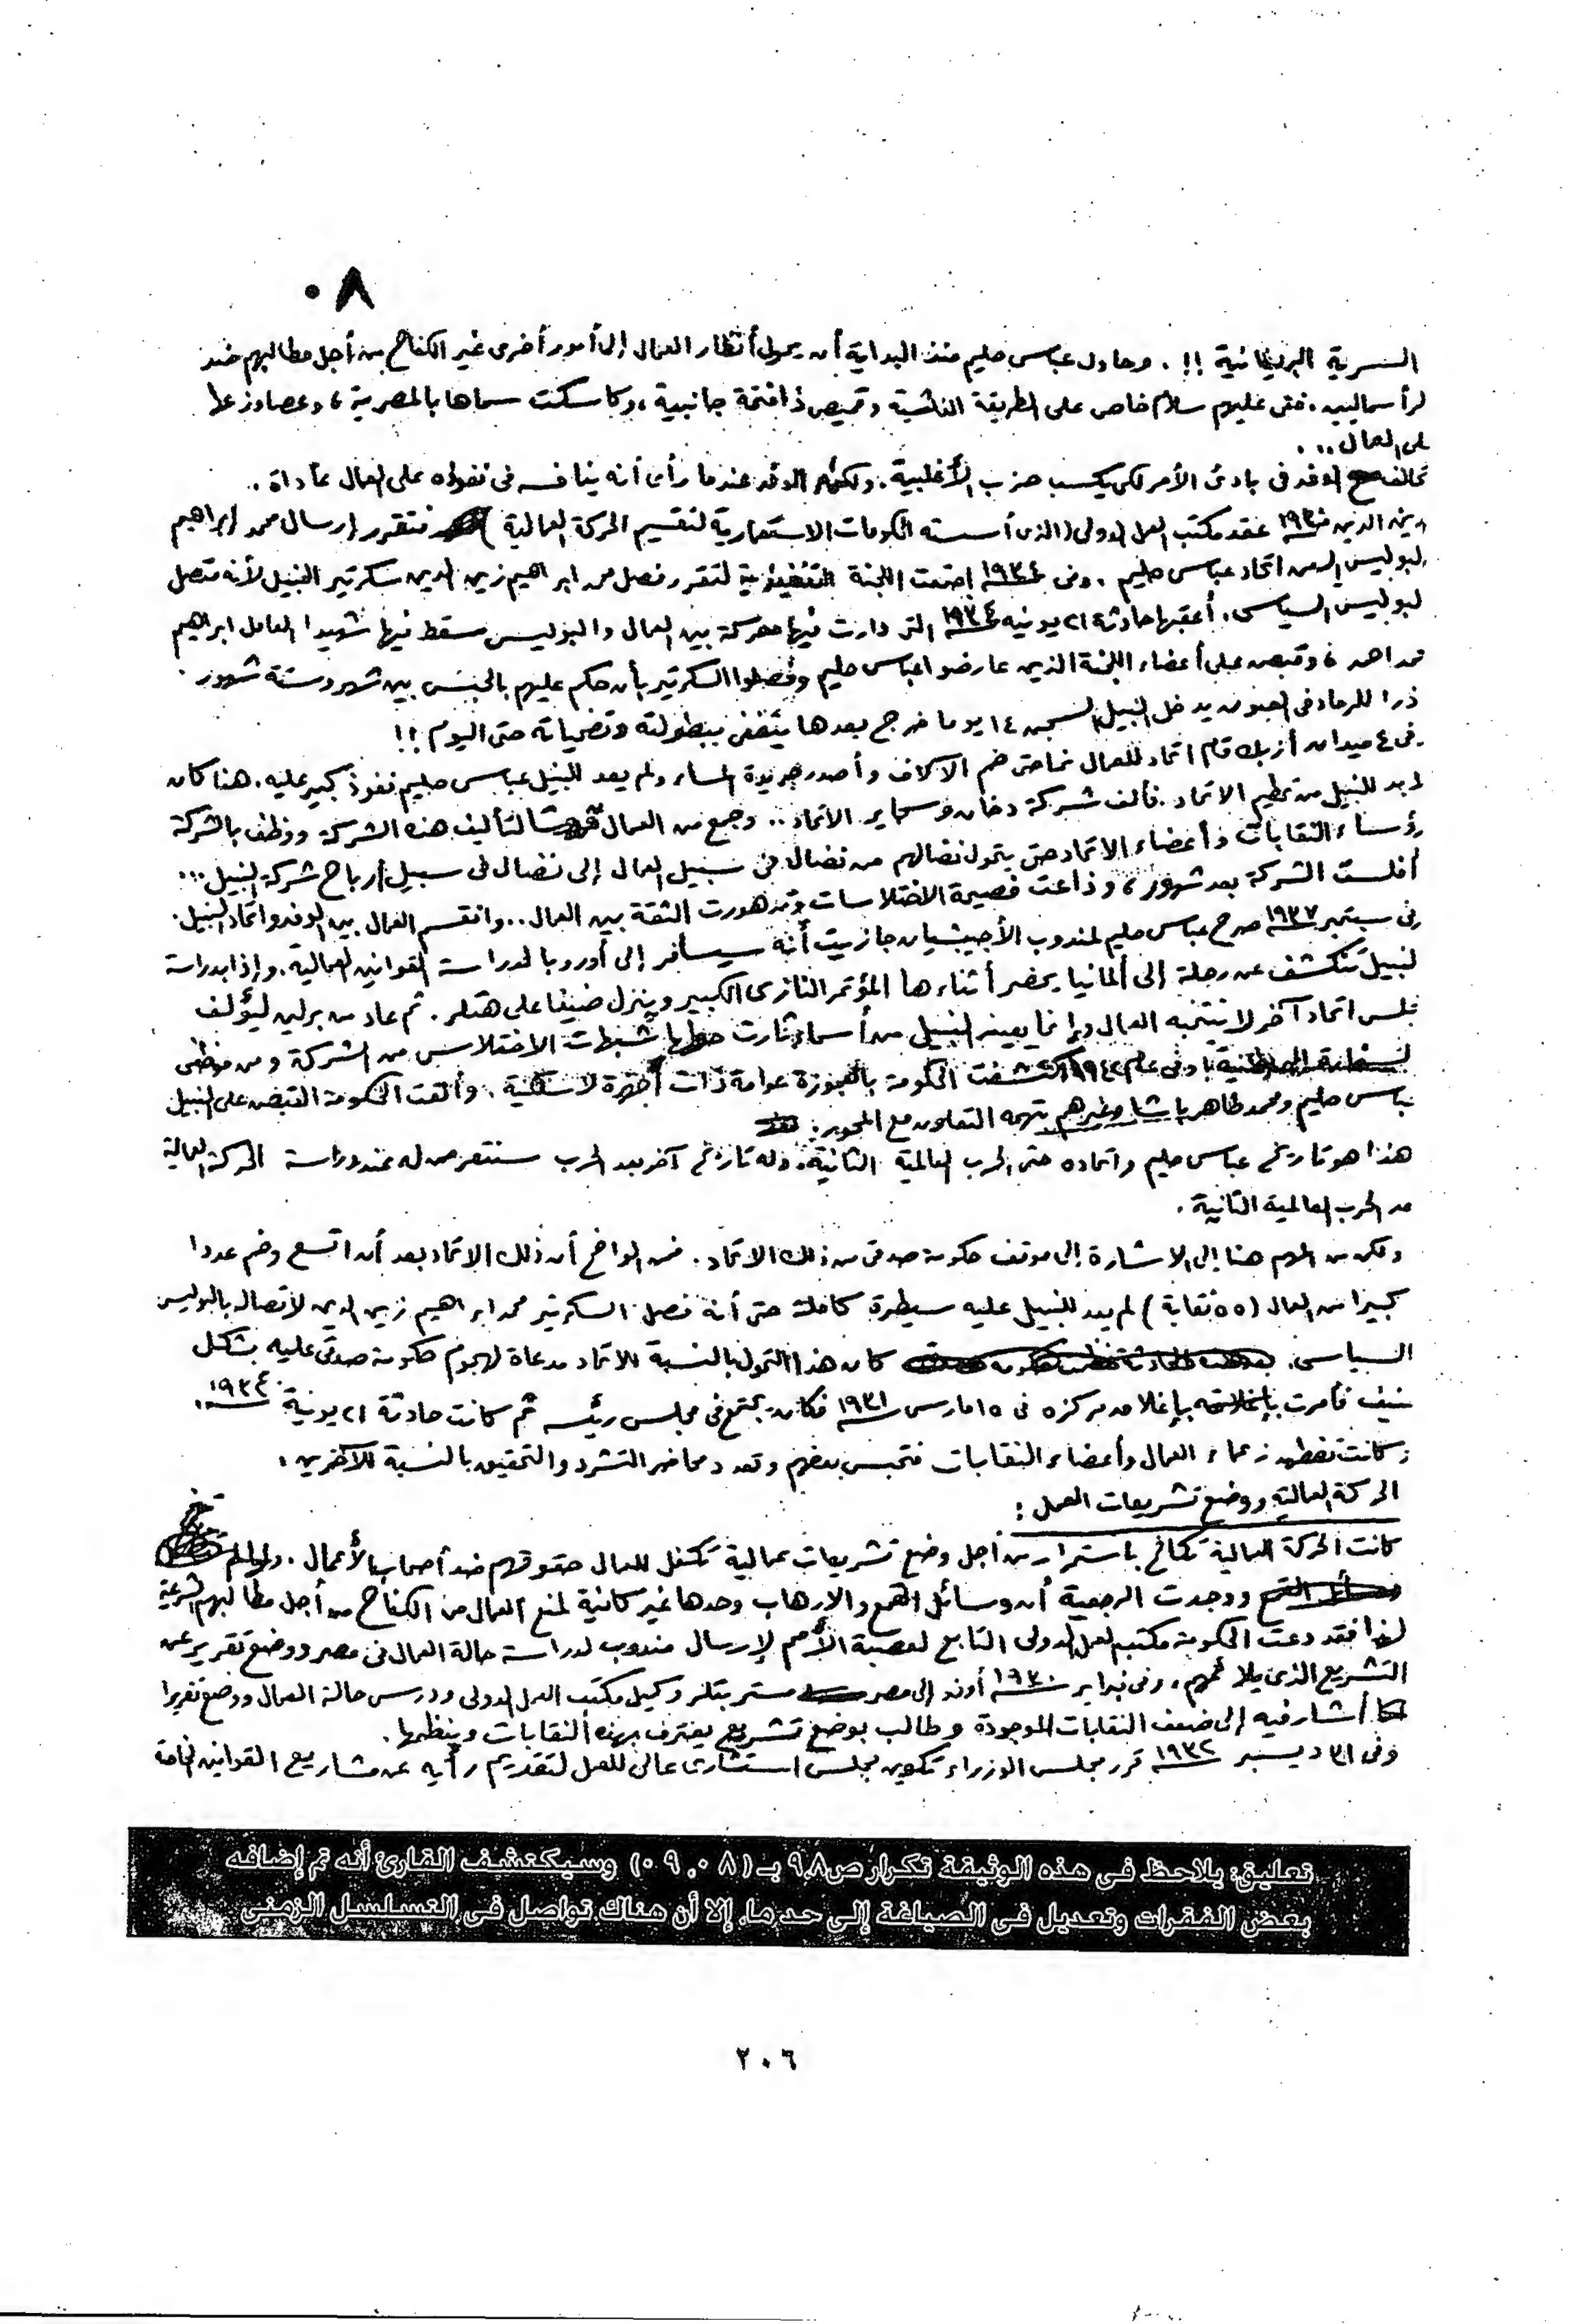 ٠٨
السرية البريطانية !! . وحاول عباس حليم منذ البداية أن يحول أنظار العمال إلى أمور أخرى غير الكفاح من أجل مطالبهم ضد
لرأسماليين . سلام خاص على الطريقة الفاشية وقميص ذا فتحة جانبية ، وكاسكت سماها بالمصرية ، وعصا وزعها
على العمال ...
تحالف مع الوفد فى بادئ الأمر لكى يكسب حزب الأغلبية . ولكن الوفد عندما رأى أنه ينافسه فى نفوذه على العمال عاداه .
عقد مكتب العمل الدولى (الذى أسسته الحكومات الاستعمارية لتقسيم الحركة العمالية ) فتقرر إرسال محمد إبراهيم
اتحاد عباس حليم . وفى ١٩٣٤ اجتمعت اللجنة التنفيذية لتقرر فصل محمد ابراهيم زين الدين سكرتير النبيل لأنه متصل
لبوليس السياسى . أعقبها حادثة ٢١ يونيه ١٩٣٤ التى دارت فيها معركة بين العمال والبوليس سقط فيها شهيدا العامل ابراهيم
وقبض على أعضاء اللجنة الذين عارضوا عباس حليم وفصلوا السكرتير بأن حكم عليهم بالحبس بين شهر وستة شهور .
ذرا للرماد فى العيون يدخل النبيل السجن ١٤ يوما خرج بعدها يتغنى ببطولته وتضحياته حتى اليوم !!
فى ٤ ميدان أزبك قام اتحاد للعمال نما حتى ضم الآلاف وأصدر جريدة المساء ولم يعد للنبيل عباس حليم نفوذ كبير عليه . هنا كان
لا بد للنبيل من تحطيم الاتحاد . فألف شركة دخان وسجاير الاتحاد .. وجمع من العمال قروشا لتأليف هذه الشركة ووظف بالشركة
رؤساء النقابات وأعضاء الاتحاد حتى يتحول نضالهم من نضال فى سبيل العمال إلى نضال فى سبيل أرباح شركة النبيل ...
أفلست الشركة بعد شهور ، وذاعت فضيحة الاختلاسات وتدهورت الثقة بين العمال .. وانقسم العمال بين الوفد واتحاد النبيل .
فى سبتمبر ١٩٣٧ صرح عباس حليم لمندوب الأجيبشيان جازيت أنه سيسافر إلى أوروبا لدراسة القوانين العمالية . وإذا بدراسة
لنبيل تنكشف عن رحلة إلى ألمانيا يحضر أثناءها المؤتمر النازى الكبير وينزل ضيفا على هتلر . ثم عاد من برلين ليؤلف
مجلس اتحاد آخر لا ينتخبه العمال وإنما يعينه النبيل من أسماء ثارت حولها شبهات الاختلاس من الشركة ومن موظفى
وفى عام ١٩٤٢ اكتشفت الحكومة بالعجوزة عوامة ذات أجهزة لاسلكية . وألقت الحكومة القبض على النبيل
عباس حليم ومحمد طاهر باشا وغيرهم بتهمة التعاون مع المحور .
هذا هو تاريخ عباس حليم واتحاده حتى الحرب العالمية الثانية . وله تاريخ آخر بعد الحرب سنتعرض له عند دراسة الحركة العمالية
بعد الحرب العالمية الثانية .
ولكن من المهم هنا إلى الاشارة إلى موقف حكومة صدقى من ذلك الاتحاد . فمن الواضح أن ذلك الاتحاد بعد أن اتسع وضم عددا
كبيرا من العمال (٥٥ نقابة ) لم يعد للنبيل عليه سيطرة كاملة حتى أنه فصل السكرتير محمد ابراهيم زين الدين لاتصاله بالبوليس
السياسى . كان هذا التحول بالنسبة للاتحاد مدعاة لهجوم حكومة صدقى عليه بشكل
عنيف فأمرت بإغلاق مركزه فى ١٥ مارس ١٩٣١ فكان يجتمع فى مجلس رئيسه ثم كانت حادثة ٢١ يونية ١٩٣٤ .
وكانت تضطهد زعماء العمال وأعضاء النقابات فتحبس بعضهم وتعد محاضر التشرد والتحقيق بالنسبة للآخرين .
الحركة العمالية ووضع تشريعات العمل :
كانت الحركة العمالية تكافح باستمرار من أجل وضع تشريعات عمالية تكفل للعمال حقوقهم ضد أصحاب الأعمال .
ووجدت الرجعية أن وسائل القمع والارهاب وحدها غير كافية لمنع العمال من الكفاح من أجل مطالبهم الشرعية
لهذا فقد دعت الحكومة مكتب العمل الدولى التابع لعصبة الأمم لإرسال مندوب لدراسة حالة العمال فى مصر ووضع تقرير عن
التشريع الذى يلائمهم . وفى فبراير أوفد إلى مصر مستر بتلر وكيل مكتب العمل الدولى ودرس حالة العمال ووضع تقريرا
أشار فيه إلى ضعف النقابات الموجودة وطالب بوضع تشريع يعترف بهذه النقابات وينظمها .
وفى ٣١ ديسمبر ١٩٣٢ قرر مجلس الوزراء تكوين مجلس استشارى عالى للعمل لتقديم رأيه عن مشاريع القوانين الخاصة
تعليق: يلاحظ فى هذه الوثيقة تكرار ص٩,٨ بـ (٠٨ ,٠٩) وسيكتشف القارئ أنه تم إضافه
بعض الفقرات وتعديل فى الصياغة إلى حد ما، إلا أن هناك تواصل فى التسلسل الزمنى
٢٠٦